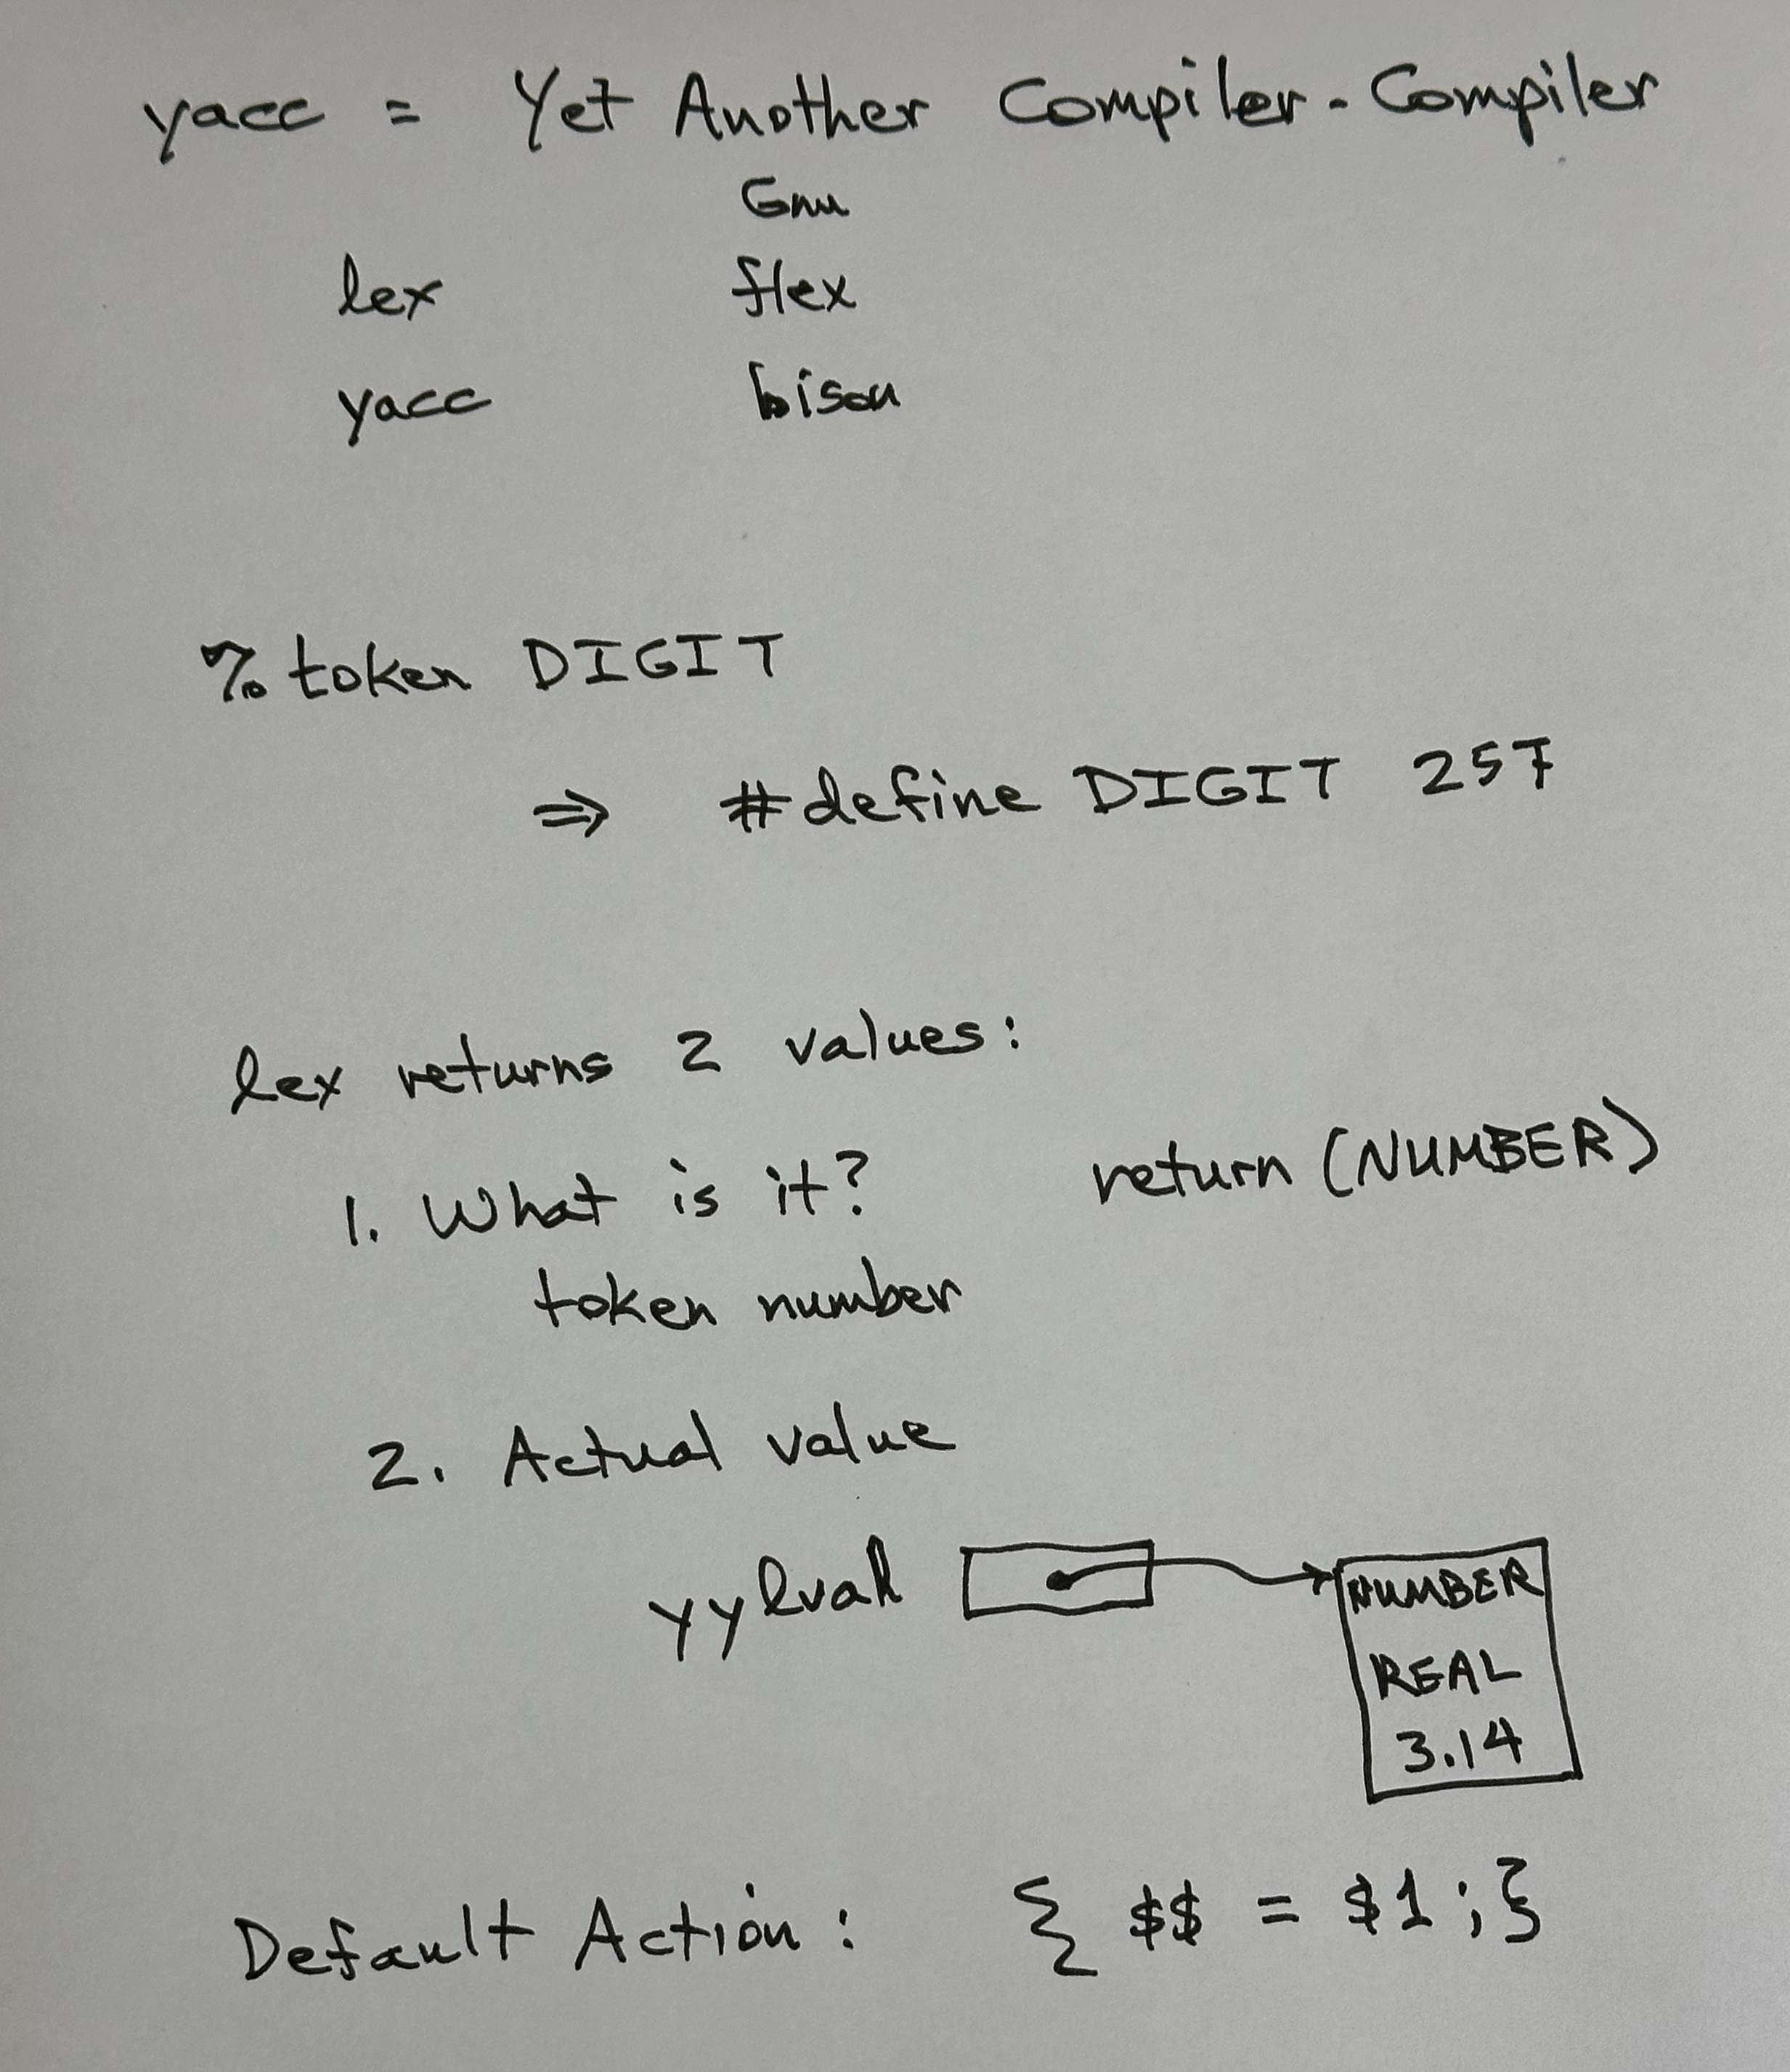 yacc = Yet Another Compiler-Compiler
Gnu
lex flex
yacc bison
% token DIGIT
⇒ #define DIGIT 257
lex returns 2 values:
1. What is it? return (NUMBER)
token number
2. Actual value
yylval NUMBER
REAL
3.14
Default Action: { $$ = $1;}